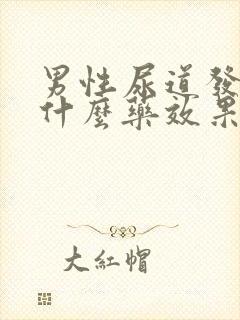 男性尿道發
什麼藥效果
大紅帽